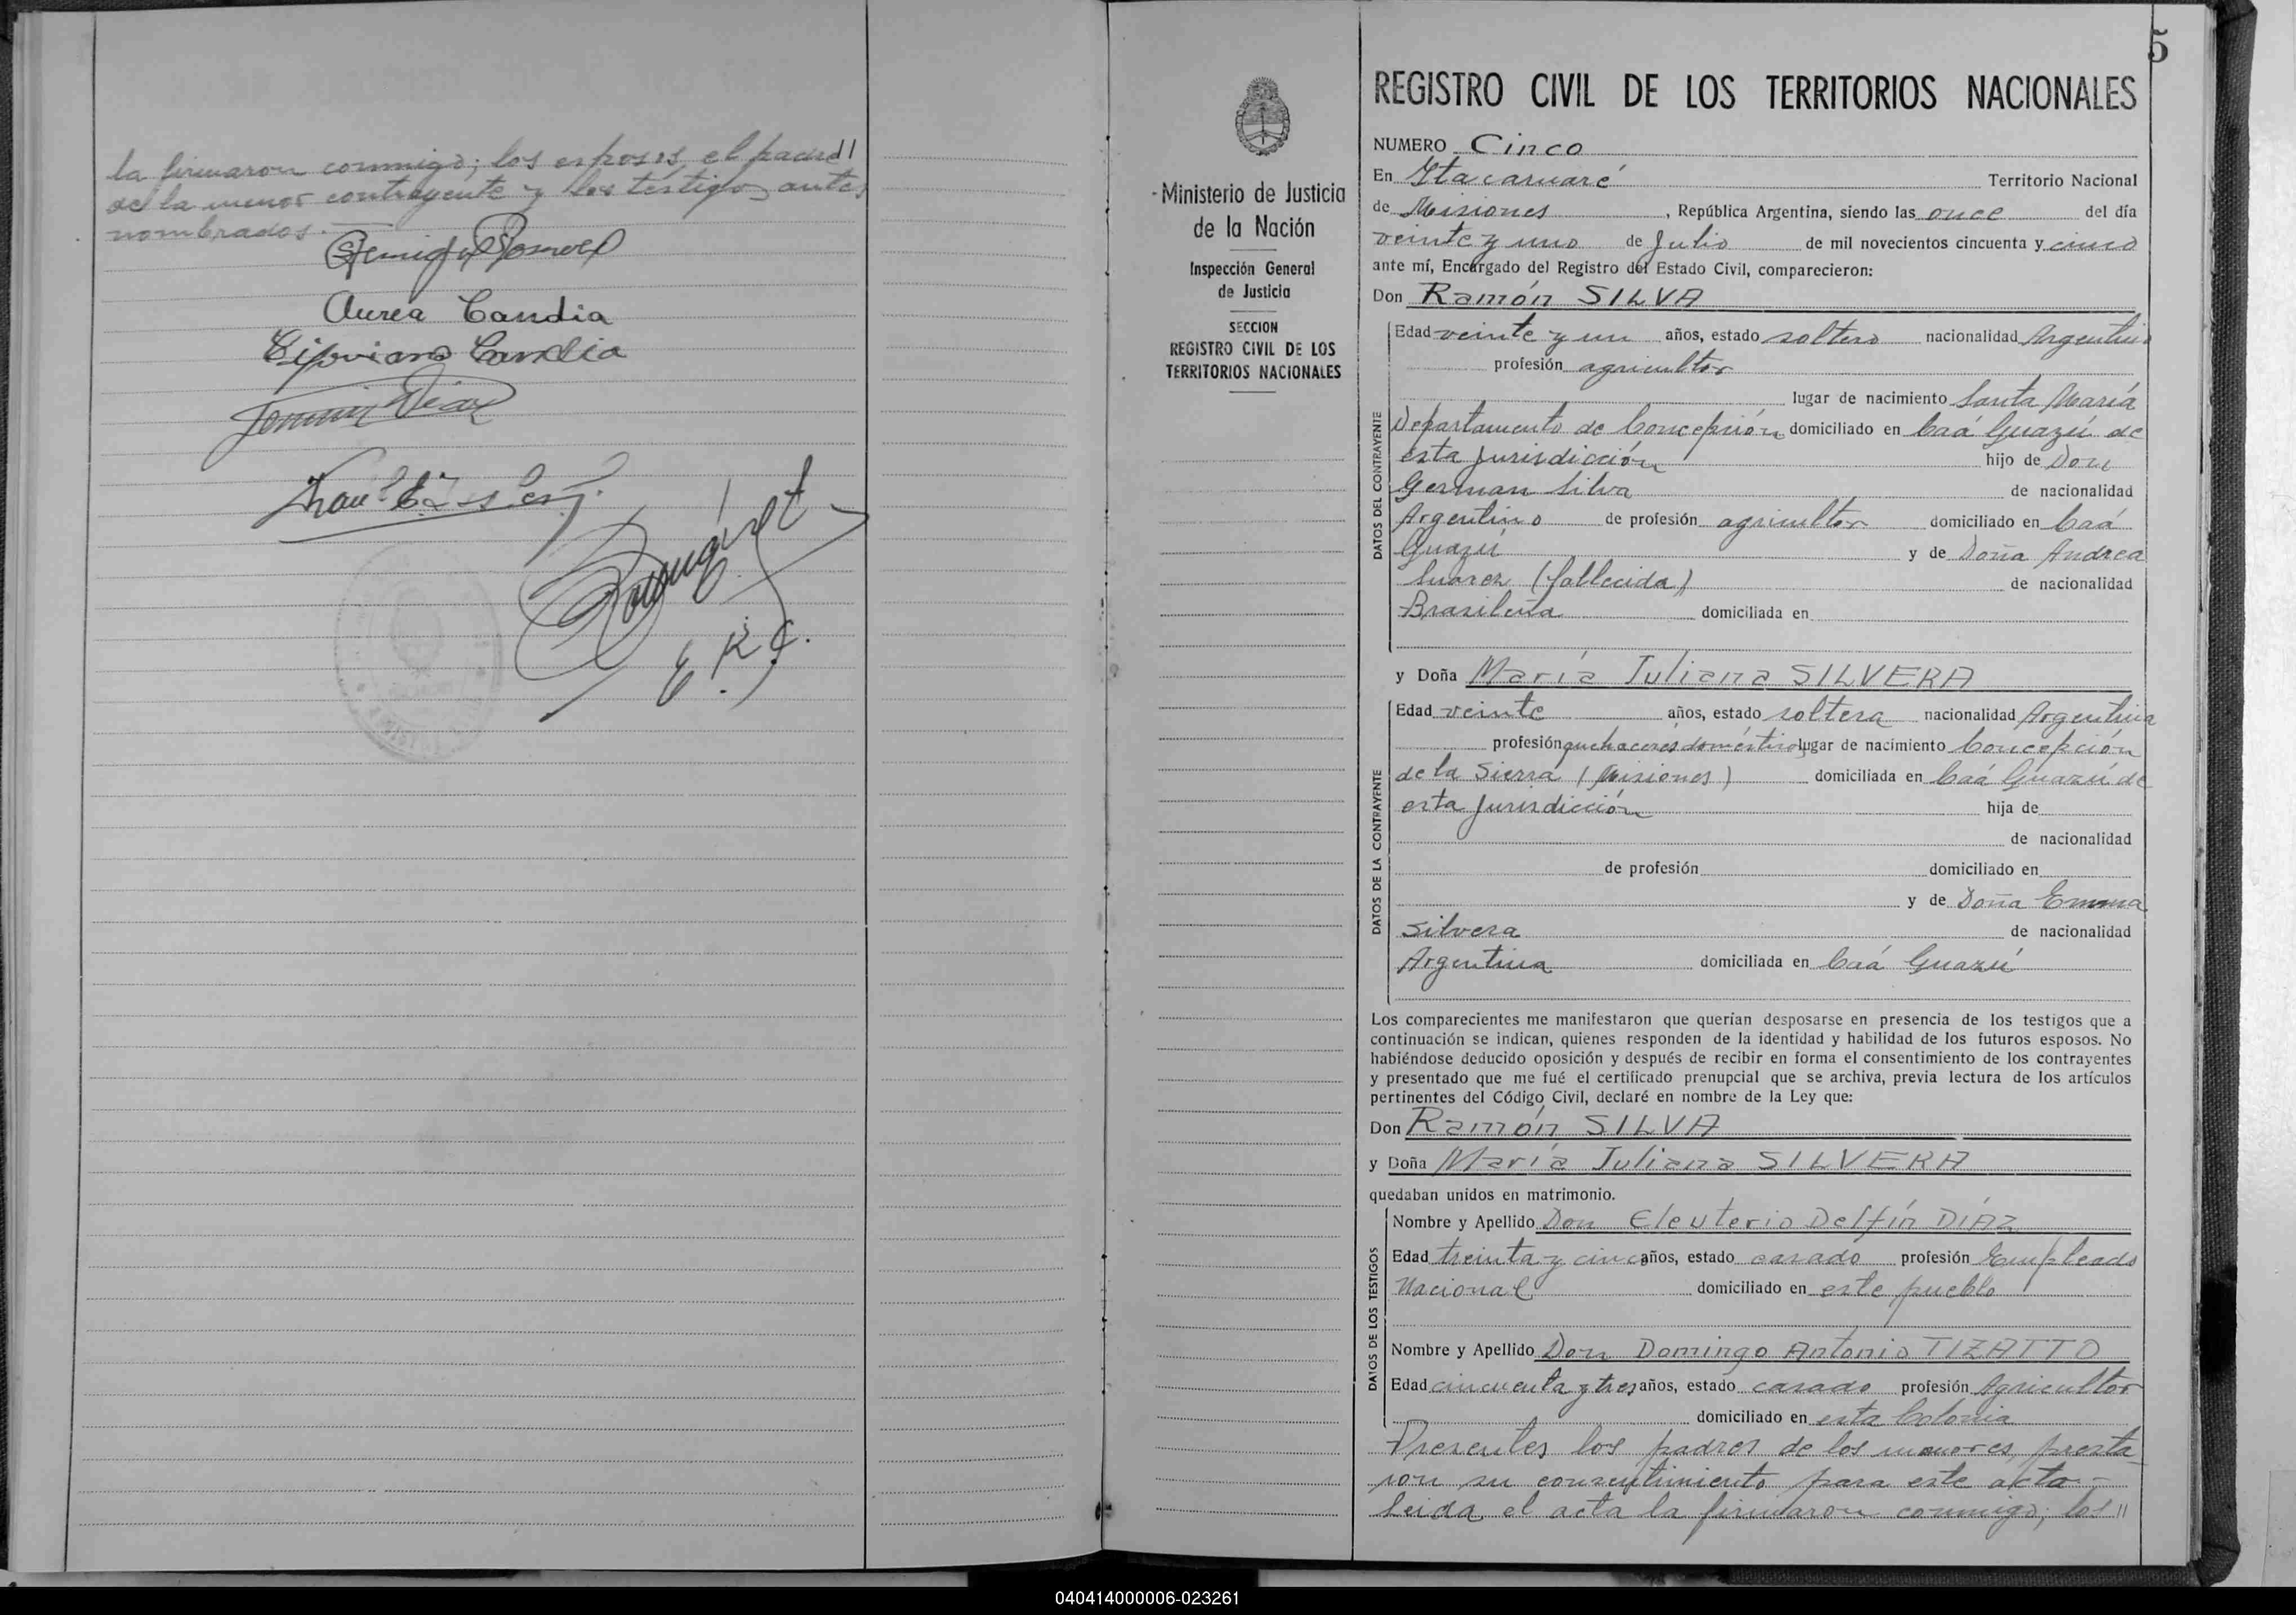 la firmaron conmigo; los esposos, el padre//
de la menor contrayente y los testigos antes
nombrados.
Aurea Candia
Cipriano Candia
Diaz
E. R. C.
5
Ministerio de Justicia
de la Nación
Inspección General
de Justicia
SECCION
REGISTRO CIVIL DE LOS
TERRITORIOS NACIONALES
REGISTRO CIVIL DE LOS TERRITORIOS NACIONALES
NUMERO Cinco
En Itacaruaré Territorio Nacional
de Misiones, República Argentina, siendo las once del día
veinte y uno de Julio de mil novecientos cincuenta y cinco
ante mí, Encargado del Registro del Estado Civil, comparecieron:
Don Ramón SILVA
DATOS DEL CONTRAYENTE
Edad veinte y un años, estado soltero nacionalidad Argentino
profesión agricultor
lugar de nacimiento Santa María
Departamento de Concepción domiciliado en Caá Guazú de
esta Jurisdicción hijo de Don
German Silva de nacionalidad
Argentino de profesión agricultor domiciliado en Caá
Guazú y de Doña Andrea
Suarez (fallecida) de nacionalidad
Brasileña domiciliada en
y Doña María Juliana SILVERA
DATOS DE LA CONTRAYENTE
Edad veinte años, estado soltera nacionalidad Argentina
profesión quehaceres domésticos lugar de nacimiento Concepción
de la Sierra (Misiones) domiciliada en Caá Guazú de
esta Jurisdicción hija de
de nacionalidad
de profesión domiciliado en
y de Doña Emma
Silvera de nacionalidad
Argentina domiciliada en Caá Guazú
Los comparecientes me manifestaron que querían desposarse en presencia de los testigos que a
continuación se indican, quienes responden de la identidad y habilidad de los futuros esposos. No
habiéndose deducido oposición y después de recibir en forma el consentimiento de los contrayentes
y presentado que me fué el certificado prenupcial que se archiva, previa lectura de los artículos
pertinentes del Código Civil, declaré en nombre de la Ley que:
Don Ramón SILVA
y Doña María Juliana SILVERA
quedaban unidos en matrimonio.
DATOS DE LOS TESTIGOS
Nombre y Apellido Don Eleuterio Delfín DÍAZ
Edad treinta y cinco años, estado casado profesión Empleado
Nacional domiciliado en este pueblo
Nombre y Apellido Don Domingo Antonio TIZATTO
Edad cincuenta y tres años, estado casado profesión Agricultor
domiciliado en esta Colonia
Presentes los padres de los menores, presta
ron su consentimiento para este acto.-
Leida el acta la firmaron conmigo; los//
040414000006-023261